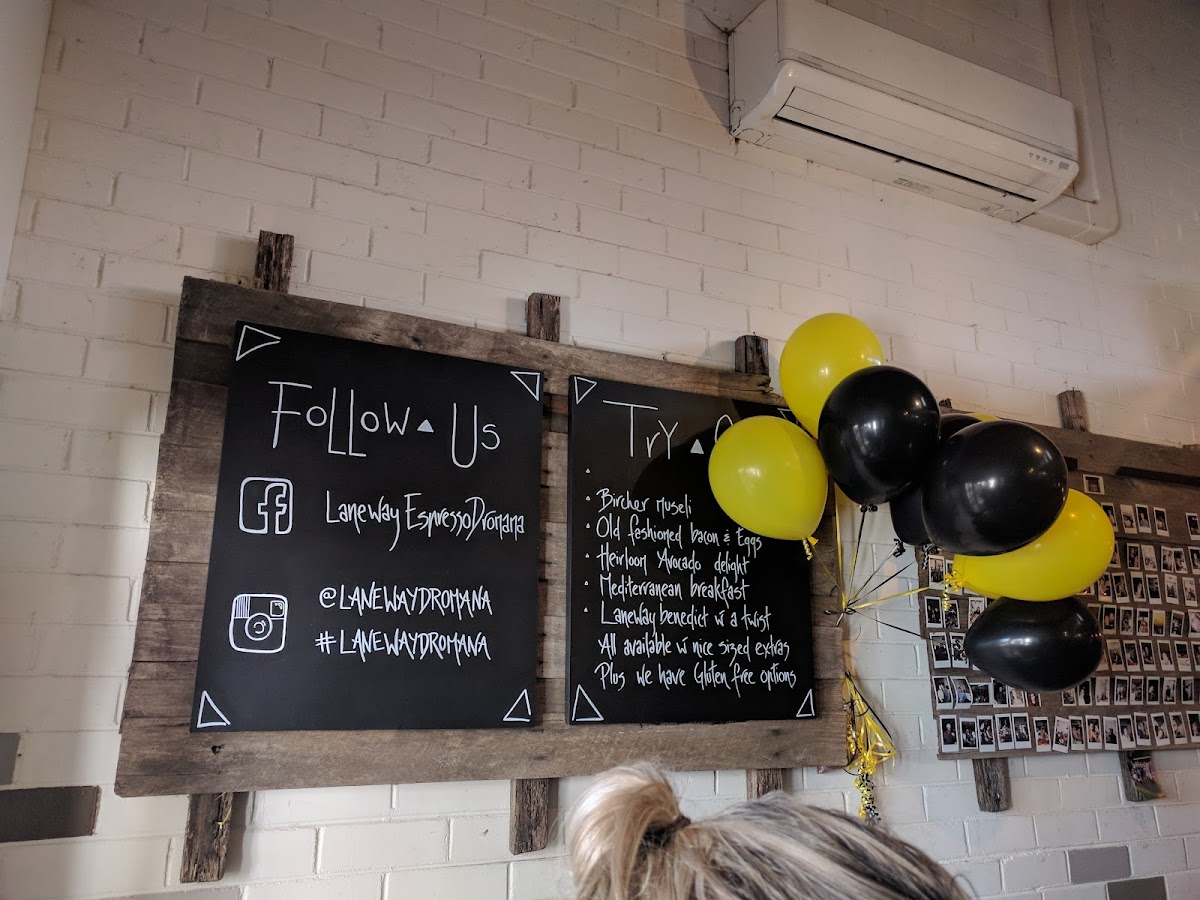 Follow Us
f
Laneway EspressoDromana
@LANEWAYDROMANA
#LANEWAYDROMANA
Try
Bircher Museli
Old fashioned bacon & Eggs
Heirloom Avocado delight
Mediterranean breakfast
Laneway benedict w a twist
All available w nice sized extras
Plus we have Gluten free options